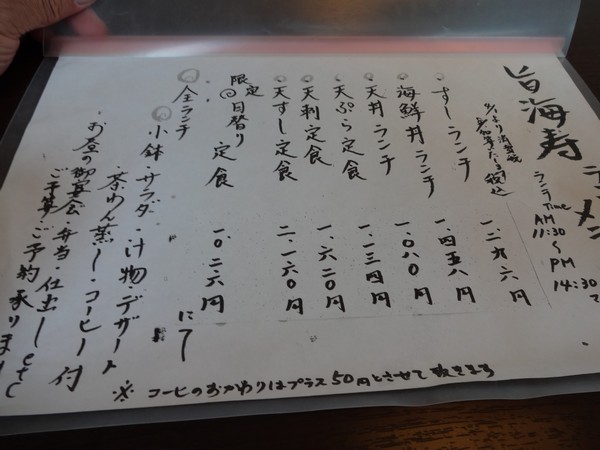 旨海寿
ランチTime
AM
11:30
〜
PM
14:30
・すしランチ 一.二九六円
・海鮮丼ランチ 一.四五八円
・天丼ランチ 一.〇八〇円
・天ぷら定食 一.一三四円
・天刺定食 一.六二〇円
・天すし定食 二.一六〇円
限定
◎日替り定食 一.〇二六円
・全ランチ にて
小鉢・サラダ・汁物・デザート
・茶わん蒸し・コーヒー付
・お昼の御宴会・弁当・仕出しetc
ご予算・ご予約承りまし
※ コーヒのおかわりはプラス50円とさせて頂きます